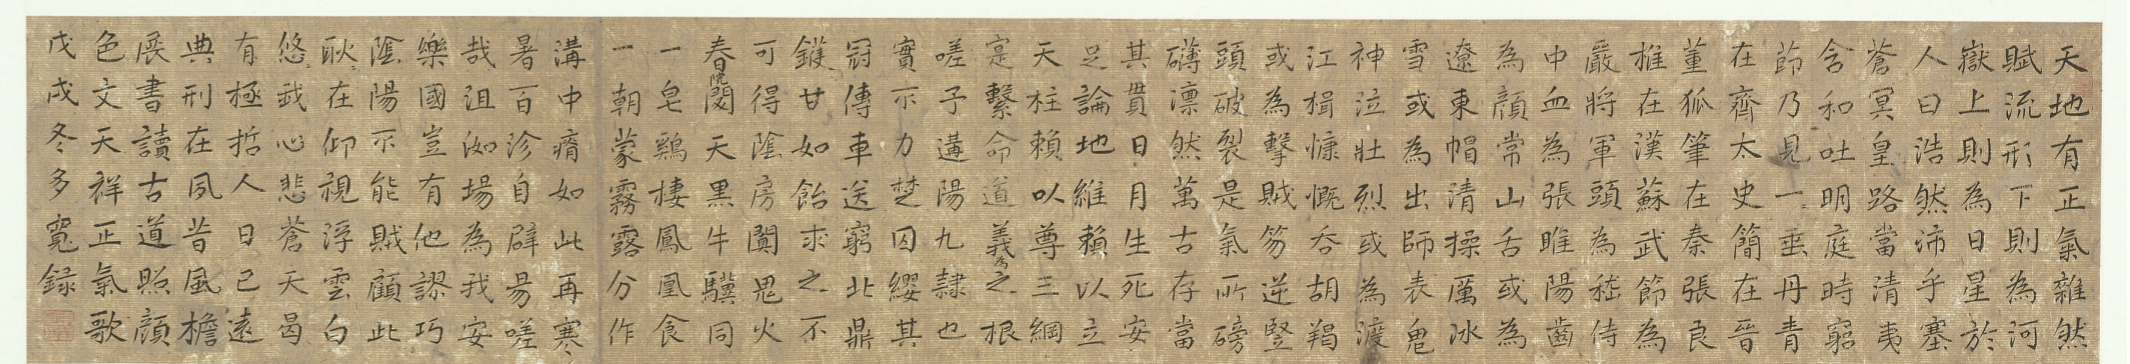 天地有正氣雜然
賦流形下則為河
嶽上則為日星於
人曰浩然沛乎塞
蒼冥皇路當清夷
含和吐明庭時窮
節乃見一垂丹青
在齊太史簡在晉
董狐筆在秦張良
椎在漢蘇武節為
嚴將軍頭為嵇侍
中血為張睢陽齒
為顏常山舌或為
遼東帽清操厲冰
雪或為出師表鬼
神泣壯烈或為渡
江楫慷慨吞胡羯
或為擊賊笏逆豎
頭破裂是氣所磅
礴凛然萬古存當
其貫日月生死安
足論地維賴以立
天柱賴以尊三綱
寔繫命道義為之根
嗟予遘陽九隸也
實不力楚囚纓其
冠傳車送窮北鼎
鑊甘如飴求之不
可得陰房闃鬼火
春院閟天黑牛驥同
一皂鷄棲鳳凰食
一朝蒙霧露分作
溝中瘠如此再寒
暑百沴自辟易嗟
哉沮洳場為我安
樂國豈有他謬巧
陰陽不能賊顧此
耿々在仰視浮雲白
悠々我心悲蒼天曷
有極哲人日已遠
典刑在夙昔風檐
展書讀古道照顏
色文天祥正氣歌
戊戌冬多寬録